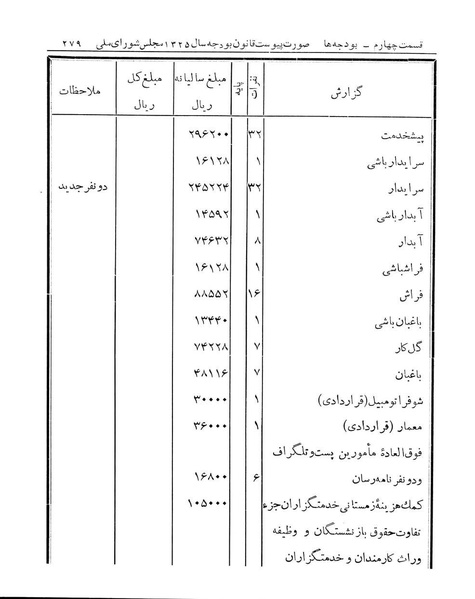 قسمت چهارم - بودجه‌ها صورت پیوست قانون بودجه سال ۱۳۲۵ مجلس شورای ملی ۲۷۹
گزارش نفرات پایه مبلغ سالیانه ریال مبلغ کل ریال ملاحظات
پیشخدمت ۳۲ ۲۹۶۲۰۰
سرایدار باشی ۱ ۱۶۱۲۸
سرایدار ۳۲ ۲۴۵۲۲۴ دو نفر جدید
آبدار باشی ۱ ۱۴۵۹۲
آبدار ۸ ۷۴۶۳۲
فراشباشی ۱ ۱۶۱۲۸
فراش ۱۶ ۸۸۵۵۲
باغبان باشی ۱ ۱۳۴۴۰
گل کار ۷ ۷۴۲۲۸
باغبان ۷ ۴۸۱۱۶
شوفر اتومبیل (قراردادی) ۱ ۳۰۰۰۰
معمار (قراردادی) ۱ ۳۶۰۰۰
فوق العادهٔ مأمورین پست و تلگراف
و دو نفر نامه رسان ۶ ۱۶۸۰۰
کمک هزینهٔ زمستانی خدمتگزاران جزء ۱۰۵۰۰۰
تفاوت حقوق بازنشستگان و وظیفه
وراث کارمندان و خدمتگزاران